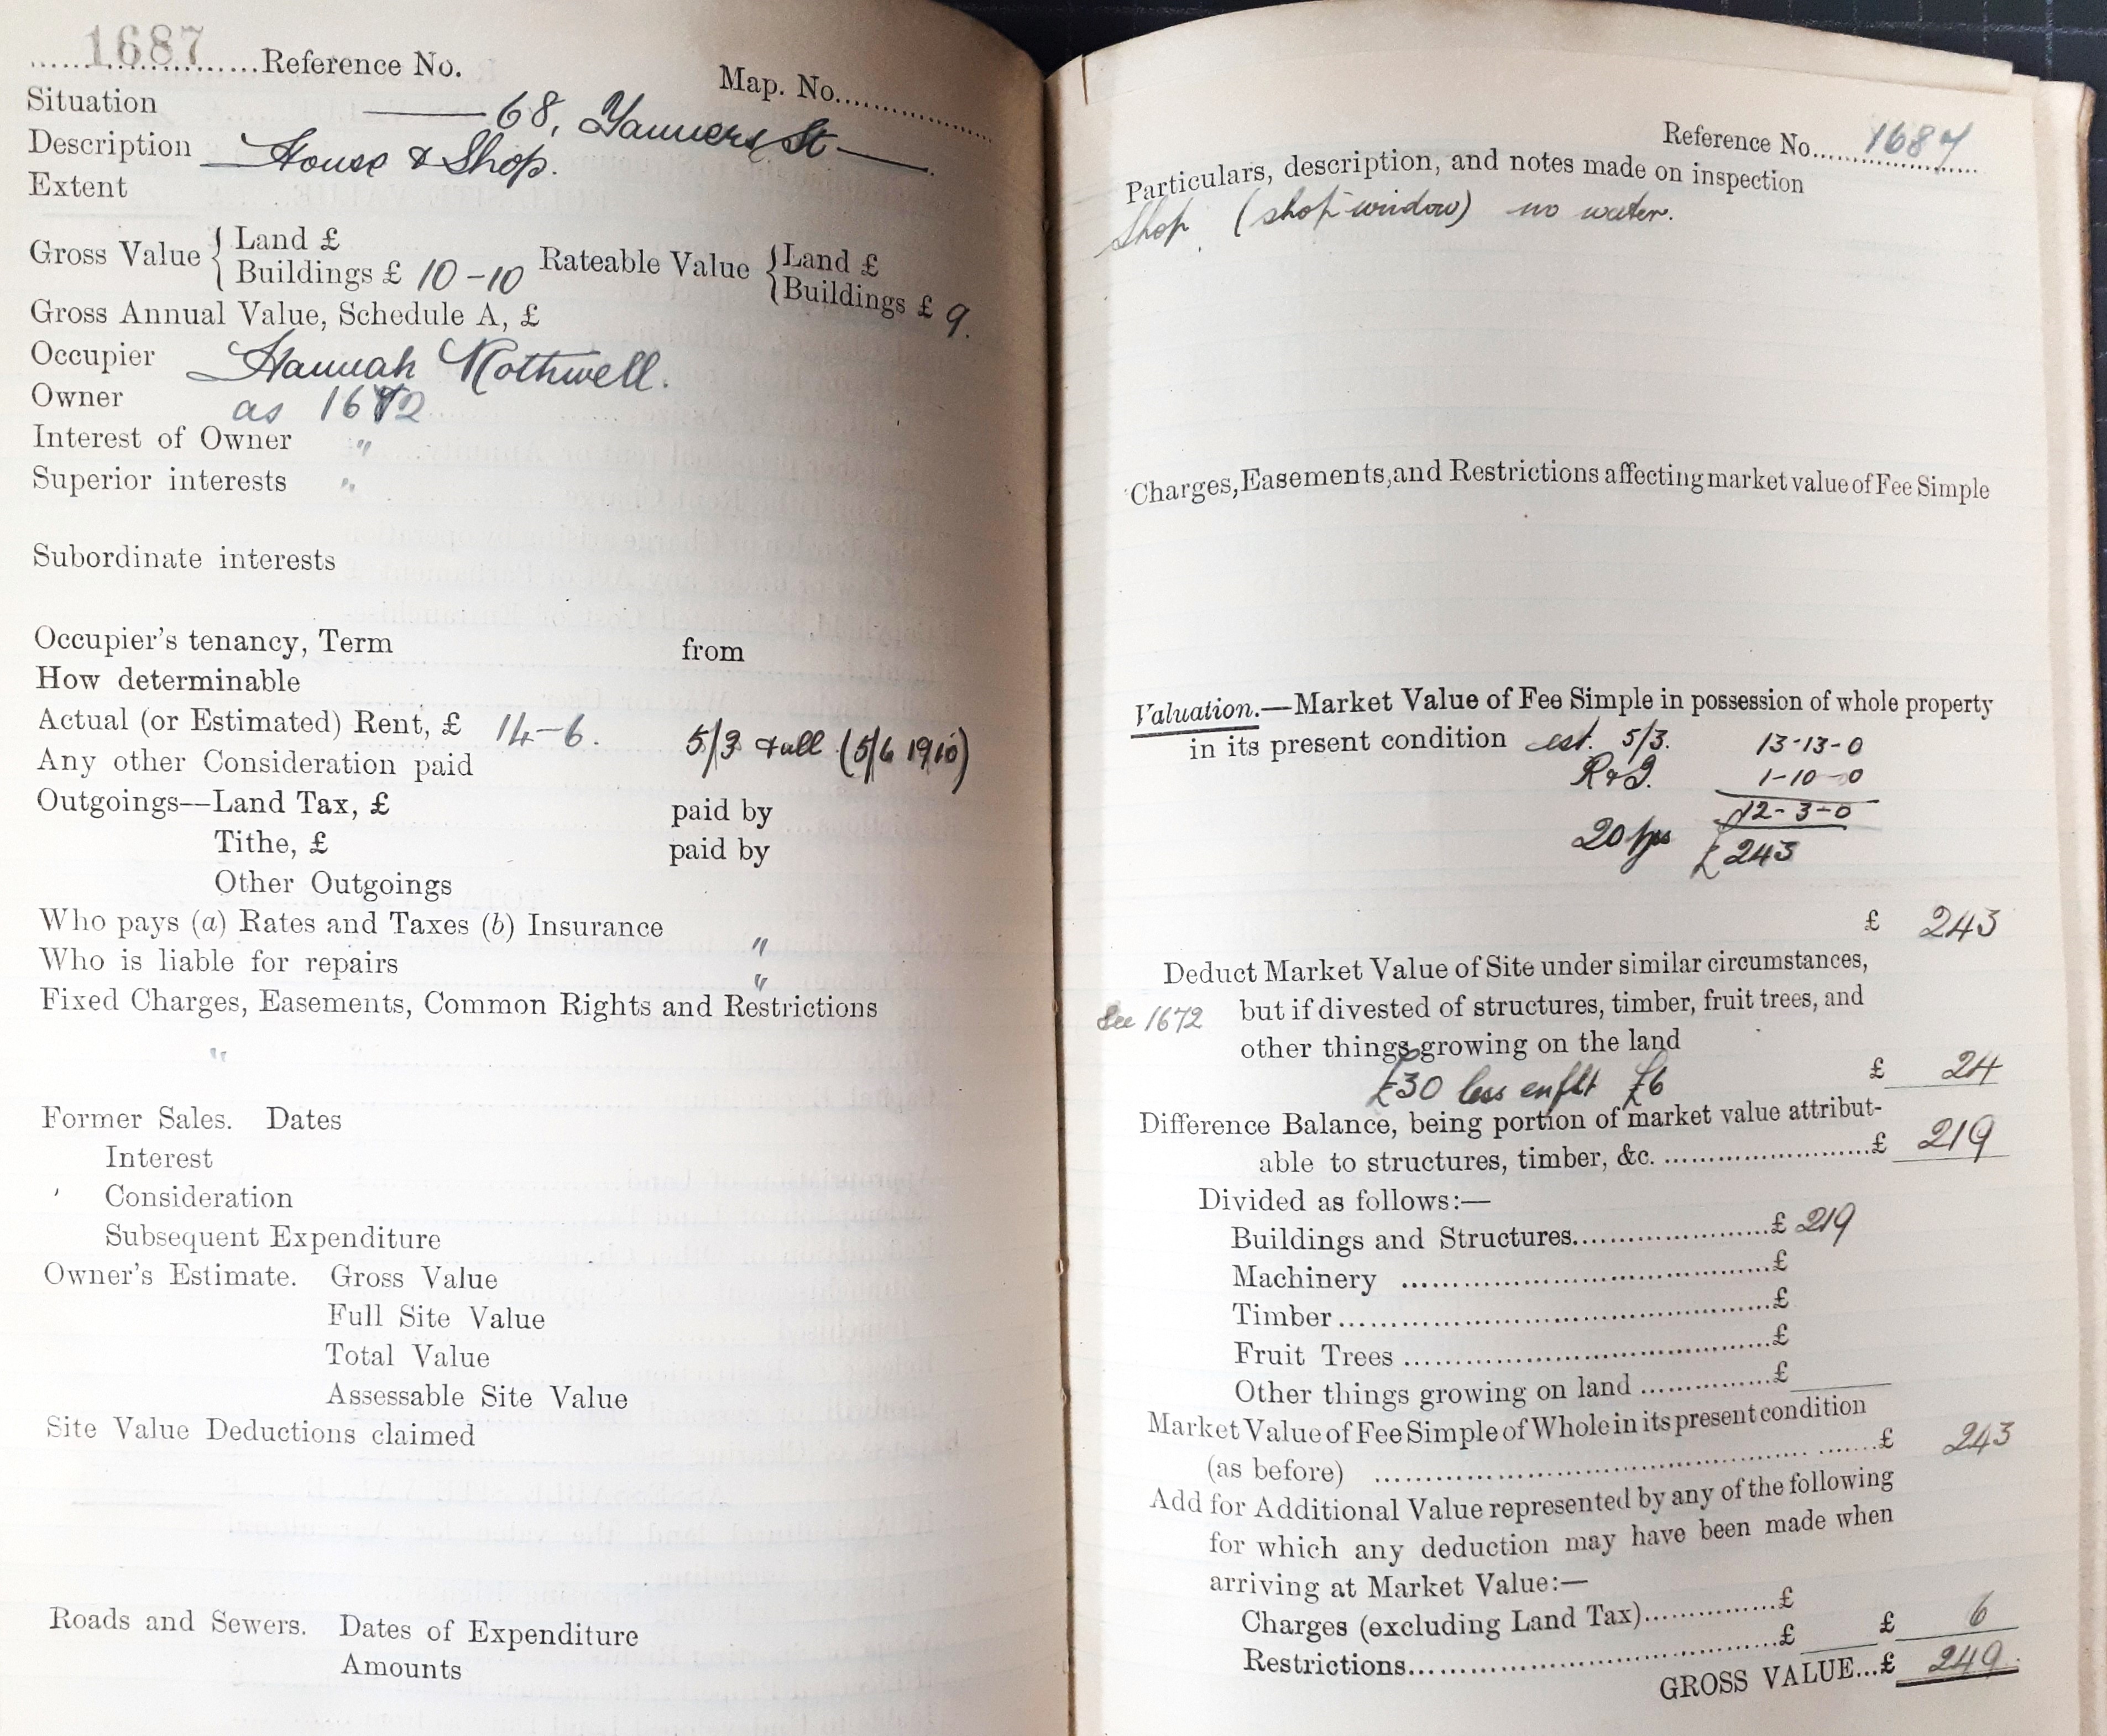 1687
Reference No.
Map. No.
Situation — 68, Yanners St —
Description — House & Shop.
Extent
Gross Value { Land £
Buildings £ 10-10
Rateable Value { Land £
Buildings £ 9.
Gross Annual Value, Schedule A, £
Occupier Hannah Rothwell.
Owner as 1672
Interest of Owner "
Superior interests "
Subordinate interests
Occupier's tenancy, Term from
How determinable
Actual (or Estimated) Rent, £ 14-6. 5/3 & all (5/6 1910)
Any other Consideration paid
Outgoings—Land Tax, £ paid by
Tithe, £ paid by
Other Outgoings
Who pays (a) Rates and Taxes (b) Insurance "
Who is liable for repairs "
Fixed Charges, Easements, Common Rights and Restrictions
"
Former Sales. Dates
Interest
Consideration
Subsequent Expenditure
Owner's Estimate. Gross Value
Full Site Value
Total Value
Assessable Site Value
Site Value Deductions claimed
Roads and Sewers. Dates of Expenditure
Amounts
Reference No. 1687
Particulars, description, and notes made on inspection
Shop (shop-window) no water.
Charges, Easements, and Restrictions affecting market value of Fee Simple
Valuation.—Market Value of Fee Simple in possession of whole property
in its present condition est. 5/3. 13-13-0
R & I. 1-10-0
12-3-0
20 yps £243
£ 243
Deduct Market Value of Site under similar circumstances,
See 1672 but if divested of structures, timber, fruit trees, and
other things growing on the land
£30 less enflt £6 £ 24
Difference Balance, being portion of market value attribut-
able to structures, timber, &c. £ 219
Divided as follows:—
Buildings and Structures £ 219
Machinery £
Timber £
Fruit Trees £
Other things growing on land £
Market Value of Fee Simple of Whole in its present condition
(as before) £ 243
Add for Additional Value represented by any of the following
for which any deduction may have been made when
arriving at Market Value:—
Charges (excluding Land Tax) £
Restrictions £ £ 6
GROSS VALUE...£ 249